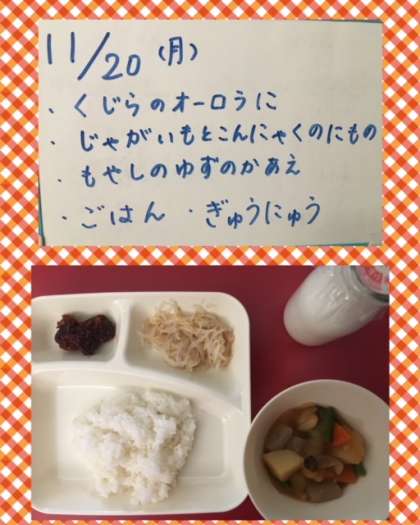 11/20 (月)
・くじらのオーロラに
・じゃがいもとこんにゃくのにもの
・もやしのゆずのかあえ
・ごはん ・ぎゅうにゅう